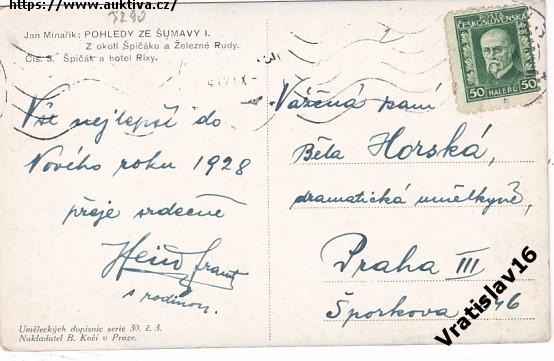 https://www.auktiva.cz/
7290
Jan Minařík: POHLEDY ZE ŠUMAVY I.
Z okolí Špičáku a Železné Rudy.
Čís. 3. Špičák a hotel Rixy.
POŠTA
ČESKOSLOVENSKÁ
50 HALÉŘŮ 50
Vše nejlepší do
Nového roku 1928
přeje srdečně
Frant
s rodinou.
Vážená paní
Běla Horská,
dramatická umělkyně,
Praha III
Šporkova
Uměleckých dopisnic serie 30. č. 3.
Nakladatel B. Kočí v Praze.
Vratislav16